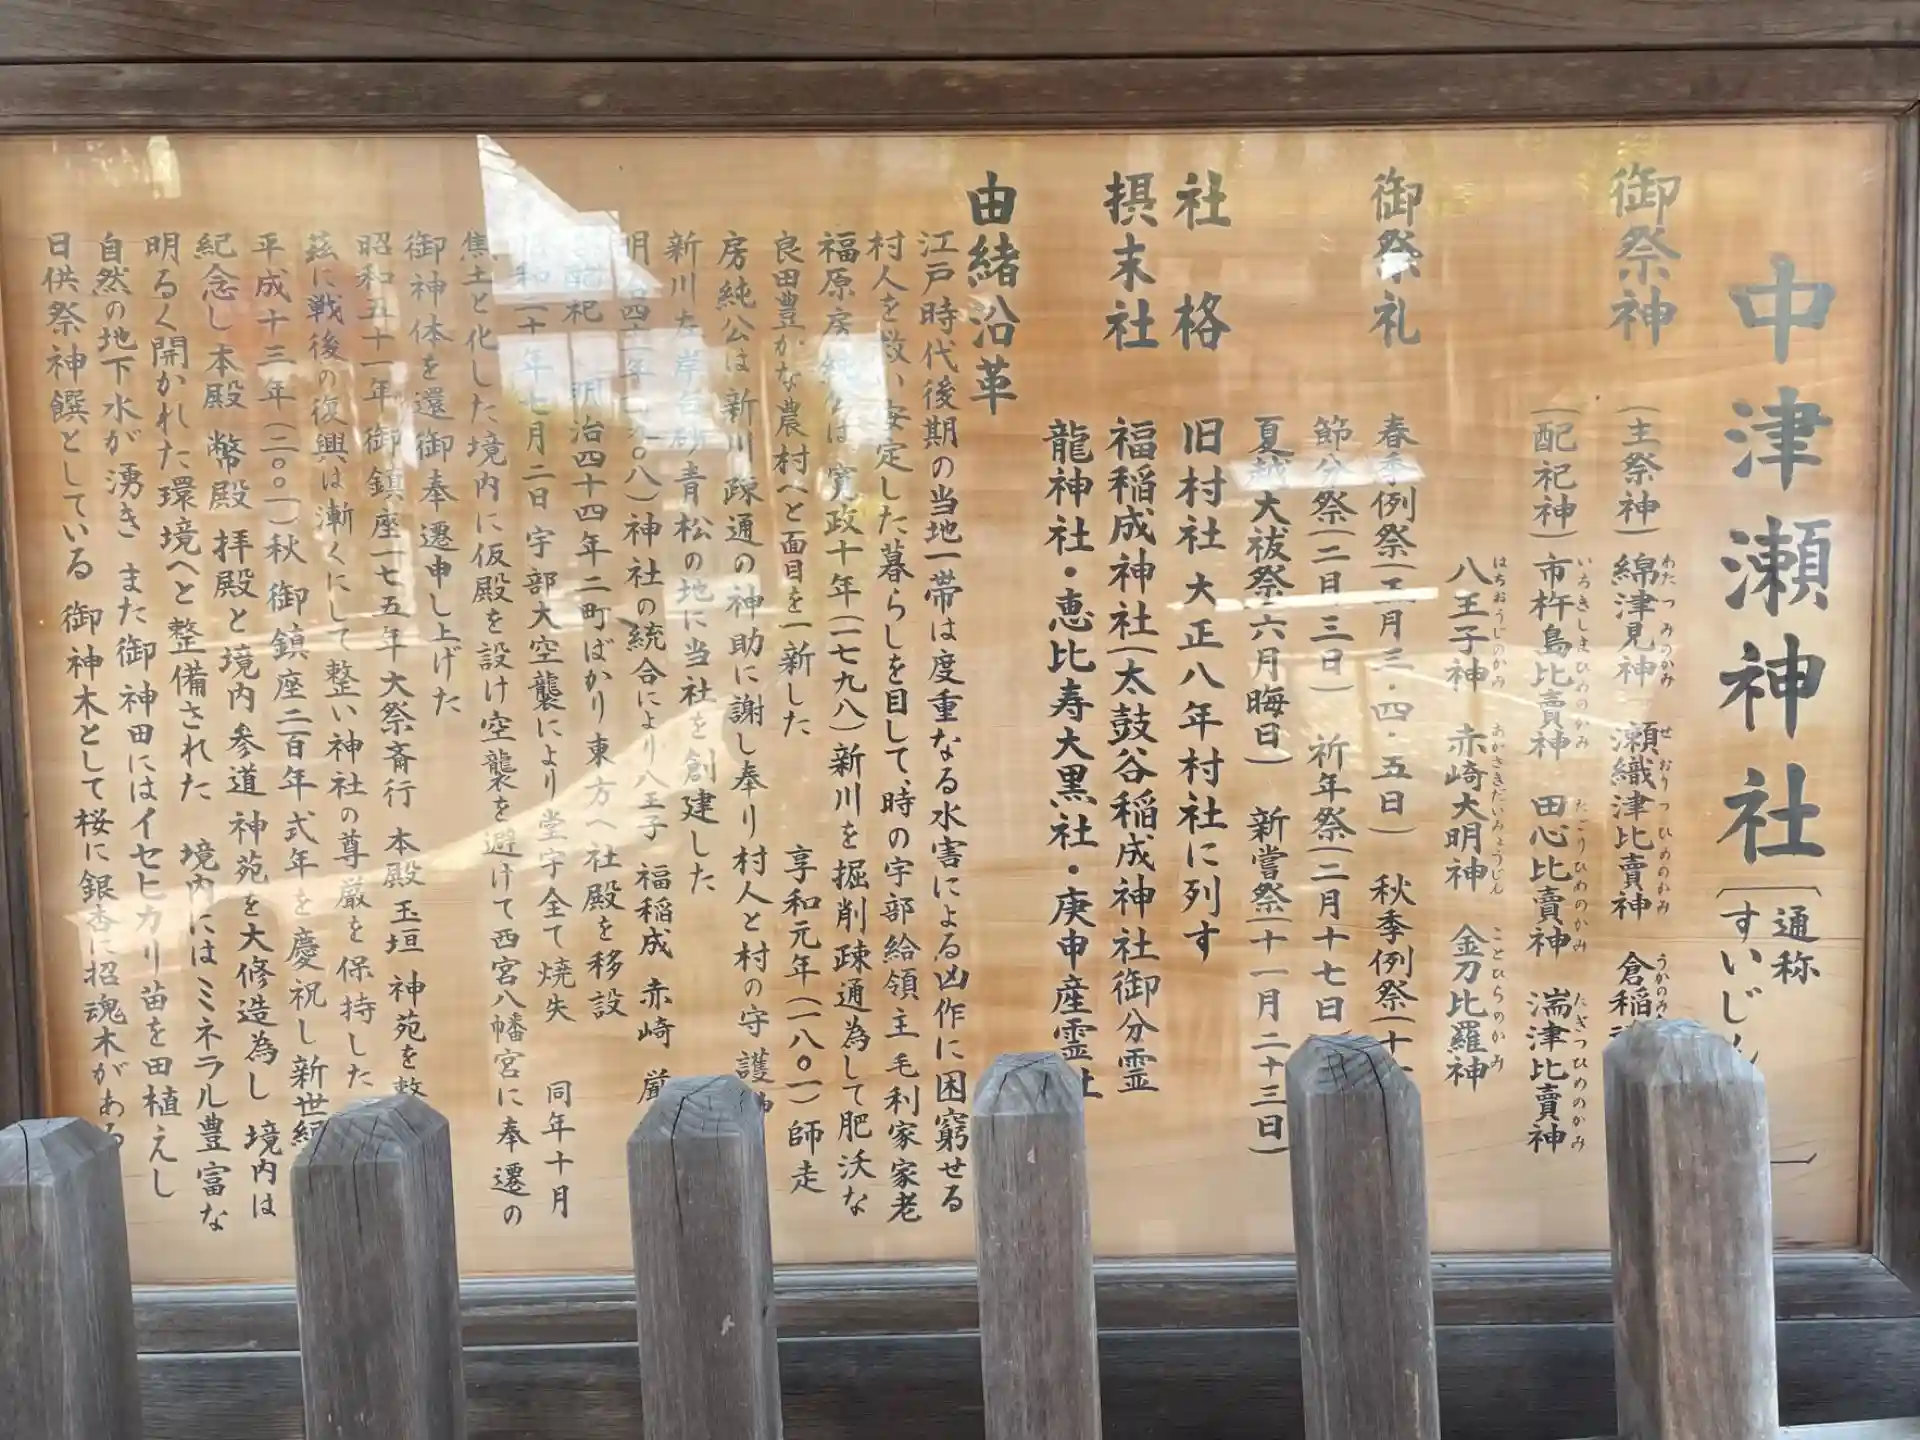 中津瀬神社
通称
すいじん
御祭神
(主祭神)綿津見神 瀬織津比賣神 倉稲
わたつみのかみ せおりつひめのかみ うかのみ
(配祀神)市杵島比賣神 田心比賣神 湍津比賣神
いちきしまひめのかみ たごりひめのかみ たぎつひめのかみ
八王子神 赤崎大明神 金刀比羅神
はちおうじのかみ あかさきだいみょうじん ことひらのかみ
御祭礼
春季例祭(五月三・四・五日) 秋季例祭(十
節分祭(二月三日) 祈年祭(二月十七日
夏越大祓祭(六月晦日) 新嘗祭(十一月二十三日)
社格
旧村社 大正八年村社に列す
摂末社
福稲成神社(太鼓谷稲成神社御分霊
龍神社・恵比寿大黒社・庚申産霊社
由緒沿革
江戸時代後期の当地一帯は度重なる水害による凶作に困窮せる
村人を救い安定した暮らしを目して、時の宇部給領主毛利家家老
福原房純公は、寛政十年(一七九八)新川を掘削疎通為して肥沃な
良田豊かな農村へと面目を一新した 享和元年(一八〇一)師走
房純公は新川疎通の神助に謝し奉り村人と村の守護
新川左岸白砂青松の地に当社を創建した
明治四十一年(一九〇八)神社の統合により八王子 福稲成 赤崎 厳
配祀 明治四十四年二町ばかり東方へ社殿を移設
昭和二十年七月二日宇部大空襲により堂宇全て焼失 同年十月
焦土と化した境内に仮殿を設け空襲を避けて西宮八幡宮に奉遷の
御神体を還御奉遷申し上げた
昭和五十一年御鎮座一七五年大祭斎行 本殿玉垣 神苑を整
茲に戦後の復興は漸くにして整い神社の尊厳を保持した
平成十三年(二〇〇一)秋 御鎮座二百年式年を慶祝し新世紀
紀念し本殿 幣殿 拝殿と境内参道 神苑を大修造為し 境内は
明るく開かれた環境へと整備された 境内にはミネラル豊富な
自然の地下水が湧き また御神田にはイセヒカリ苗を田植えし
日供祭神饌としている 御神木として桜に銀杏に招魂木がある